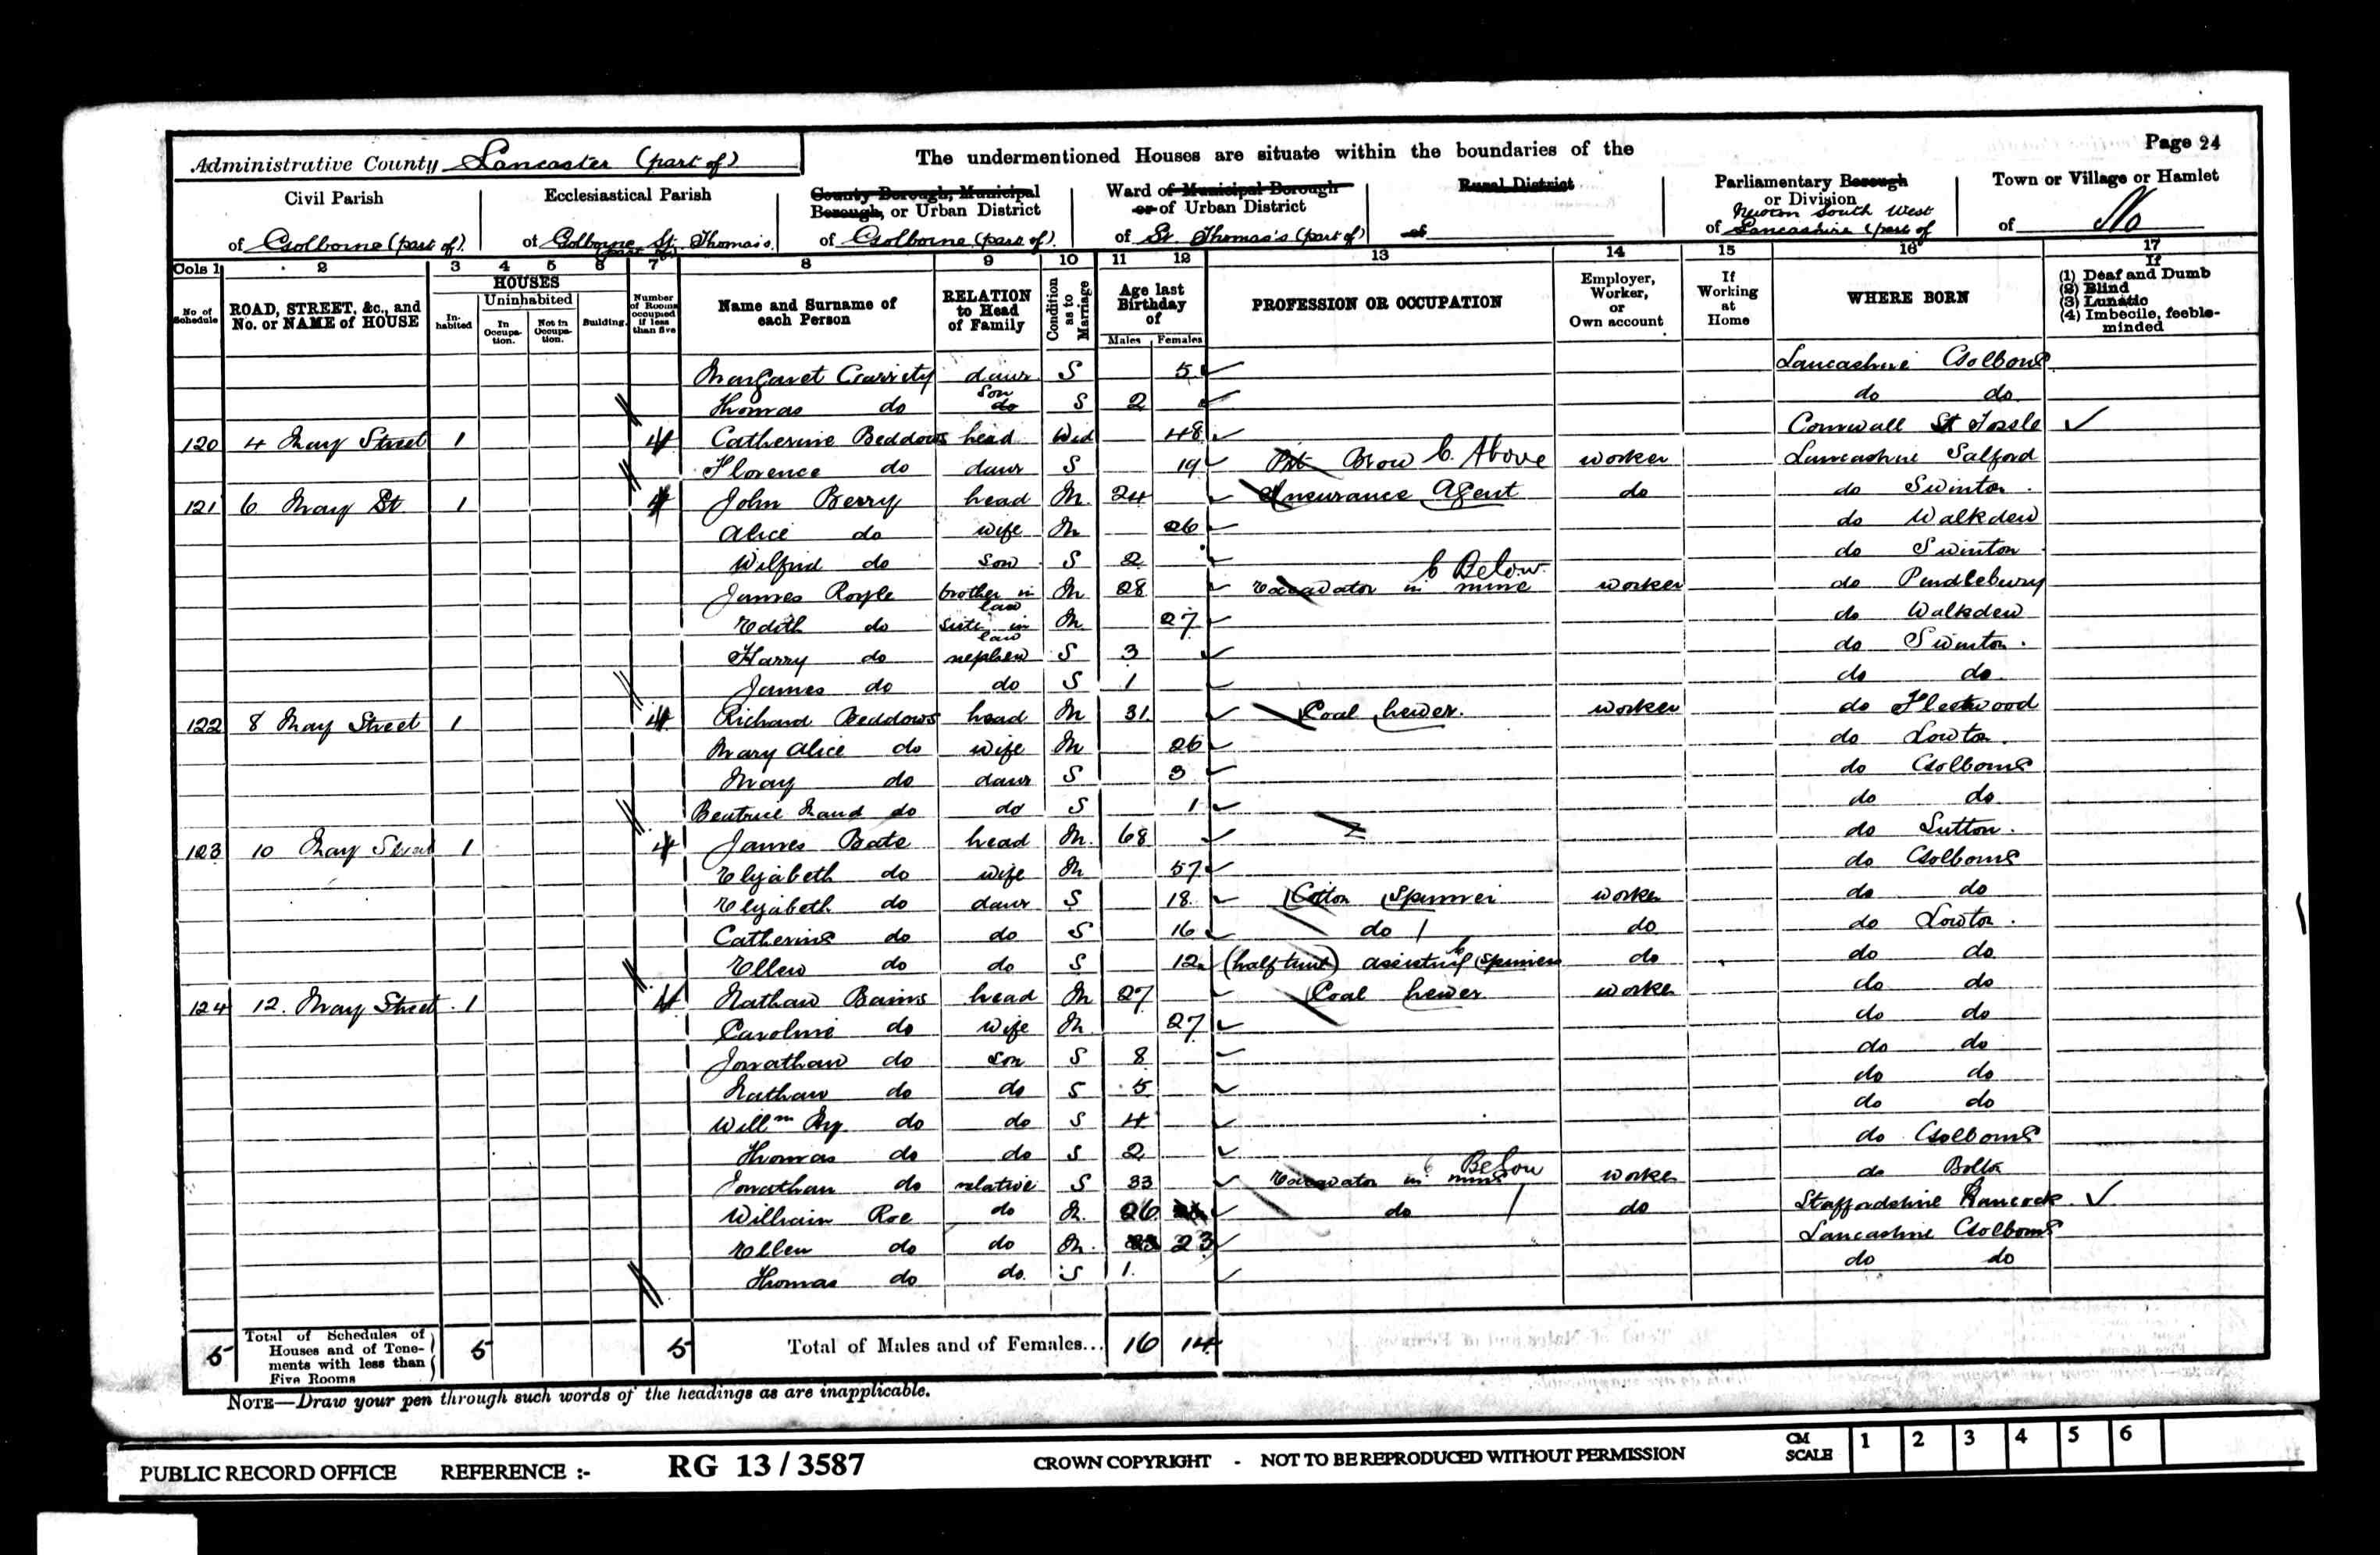 Page 24
Administrative County Lancaster (part of)
The undermentioned Houses are situate within the boundaries of the
Civil Parish
of Golborne (part of)
Ecclesiastical Parish
of Golborne St. Thomas's
(part of)
County Borough, Municipal
Borough, or Urban District
of Golborne (part of)
Ward of Municipal Borough
or of Urban District
of St. Thomas's (part of)
Rural District
of
Parliamentary Borough
or Division
of Newton South West
Lancashire (part of
Town or Village or Hamlet
of No
Cols 1 2 3 4 5 6 7 8 9 10 11 12 13 14 15 16 17
No of Schedule
ROAD, STREET, &c., and No. or NAME of HOUSE
HOUSES
Inhabited
Uninhabited
In Occupation.
Not in Occupation.
Building.
Number of Rooms occupied if less than five
Name and Surname of each Person
RELATION to Head of Family
Condition as to Marriage
Age last Birthday of
Males Females
PROFESSION OR OCCUPATION
Employer, Worker, or Own account
If Working at Home
WHERE BORN
If
(1) Deaf and Dumb
(2) Blind
(3) Lunatic
(4) Imbecile, feeble-minded
Margaret Garrity daur S 5 Lancashire Golborne
Thomas do do son S 2 do do
120 4 May Street 1 4 Catherine Beddows head Wid 48 Cornwall St
Florence do daur S 19 Pit Brow C. Above worker Lancashire Salford
121 6 May St 1 4 John Berry head M 24 Insurance Agent do do Swinton
Alice do wife M 26 do Walkden
Wilfrid do son S 2 do Swinton
James Royle brother in law M 28 Excavator in mine C Below worker do Pendlebury
Edith do sister in law M 27 do Walkden
Harry do nephew S 3 do Swinton
James do do S 1 do do
122 8 May Street 1 4 Richard Beddows head M 31 Coal hewer. worker do Fleetwood
Mary Alice do wife M 26 do Lowton
May do daur S 3 do Golborne
Beatrice Maud do do S 1 do do
123 10 May Street 1 4 James Bate head M 68 do Sutton
Elizabeth do wife M 57 do Golborne
Elizabeth do daur S 18 Cotton Spinner worker do do
Catherine do do S 16 do do do Lowton
Ellen do do S 12 (half time) assisting spinners do do do
124 12. May Street 1 4 Nathan Bains head M 27 Coal hewer worker do do
Caroline do wife M 27 do do
Jonathan do son S 8 do do
Nathan do do S 5 do do
Willm Hy. do do S 4 do do
Thomas do do S 2 do Golborne
Jonathan do relative S 33 Excavator in mine C Below worker do Bolton
William Roe do M 26 do do Staffordshire
Ellen do do M 23 Lancashire Golborne
Thomas do do S 1 do do
5 Total of Schedules of Houses and of Tenements with less than Five Rooms 5 5 Total of Males and of Females... 16 14
NOTE—Draw your pen through such words of the headings as are inapplicable.
PUBLIC RECORD OFFICE REFERENCE :- RG 13/3587 CROWN COPYRIGHT - NOT TO BE REPRODUCED WITHOUT PERMISSION CM SCALE 1 2 3 4 5 6